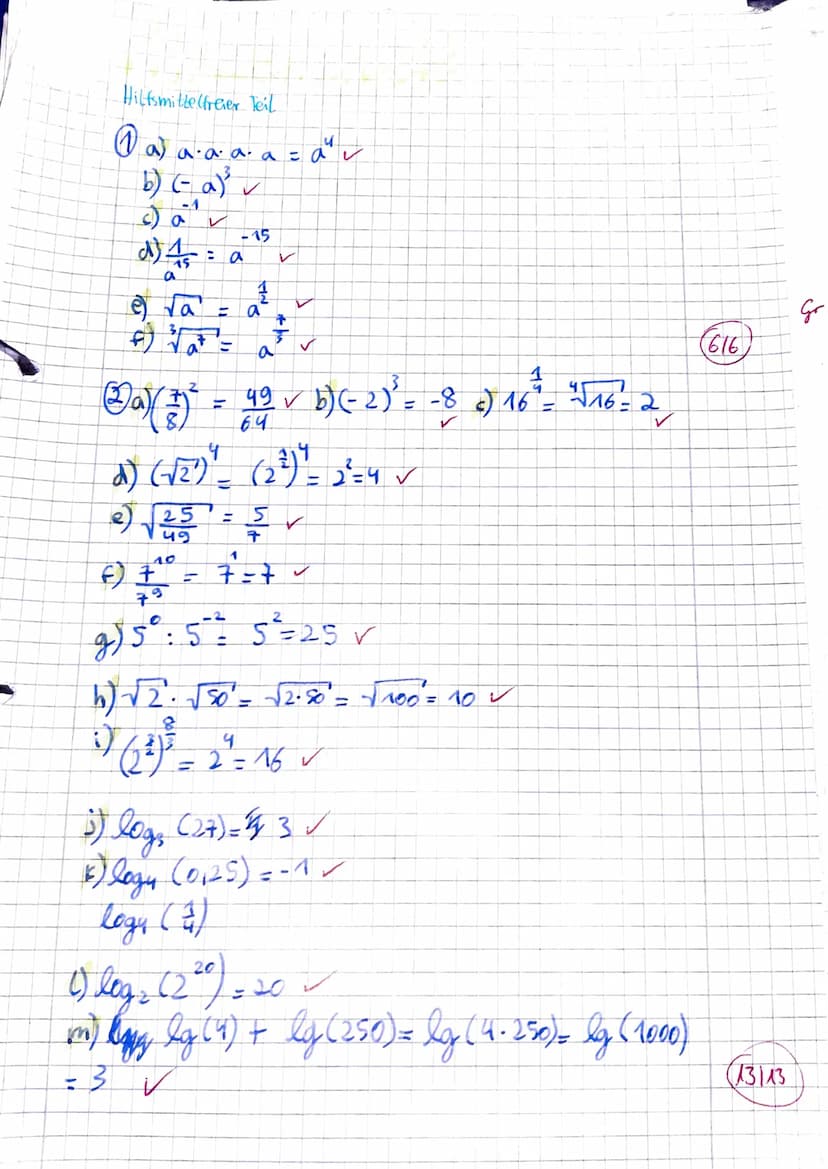 Hilfsmittelfreier Teil
① a) a·a·a·a = a⁴ ✓
b) (-a)³ ✓
c) a⁻¹ ✓
d) 1/a¹⁵ = a⁻¹⁵ ✓
e) √a = a^(1/2) ✓
f) ³√(a⁷) = a^(7/3) ✓
6/6
② a) (7/8)² = 49/64 ✓ b) (-2)³ = -8 ✓ c) 16^(1/4) = ⁴√16 = 2 ✓
d) (√2)⁴ = (2^(1/2))⁴ = 2² = 4 ✓
e) √(25/49) = 5/7 ✓
f) 7¹⁰/7⁹ = 7¹ = 7 ✓
g) 5⁰ : 5⁻² = 5² = 25 ✓
h) √2 · √50 = √(2·50) = √100 = 10 ✓
i) (2^(3/2))^(8/3) = 2⁴ = 16 ✓
j) log₃ (27) = 3 ✓
k) log₄ (0,25) = -1 ✓
log₄ (1/4)
l) log₂ (2²⁰) = 20 ✓
m) lg(4) + lg(250) = lg(4·250) = lg(1000)
= 3 ✓
13/13